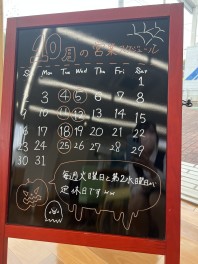 10月の営業スケジュール
Sun Mon Tue Wed Thu Fri Sat
1
3 4 5 6 7 8
10 12 13 14 15
16 17 18 19 20 21 22
23 24 25 26 27 28 29
30 31
毎週火曜日と第2水曜日が
定休日です